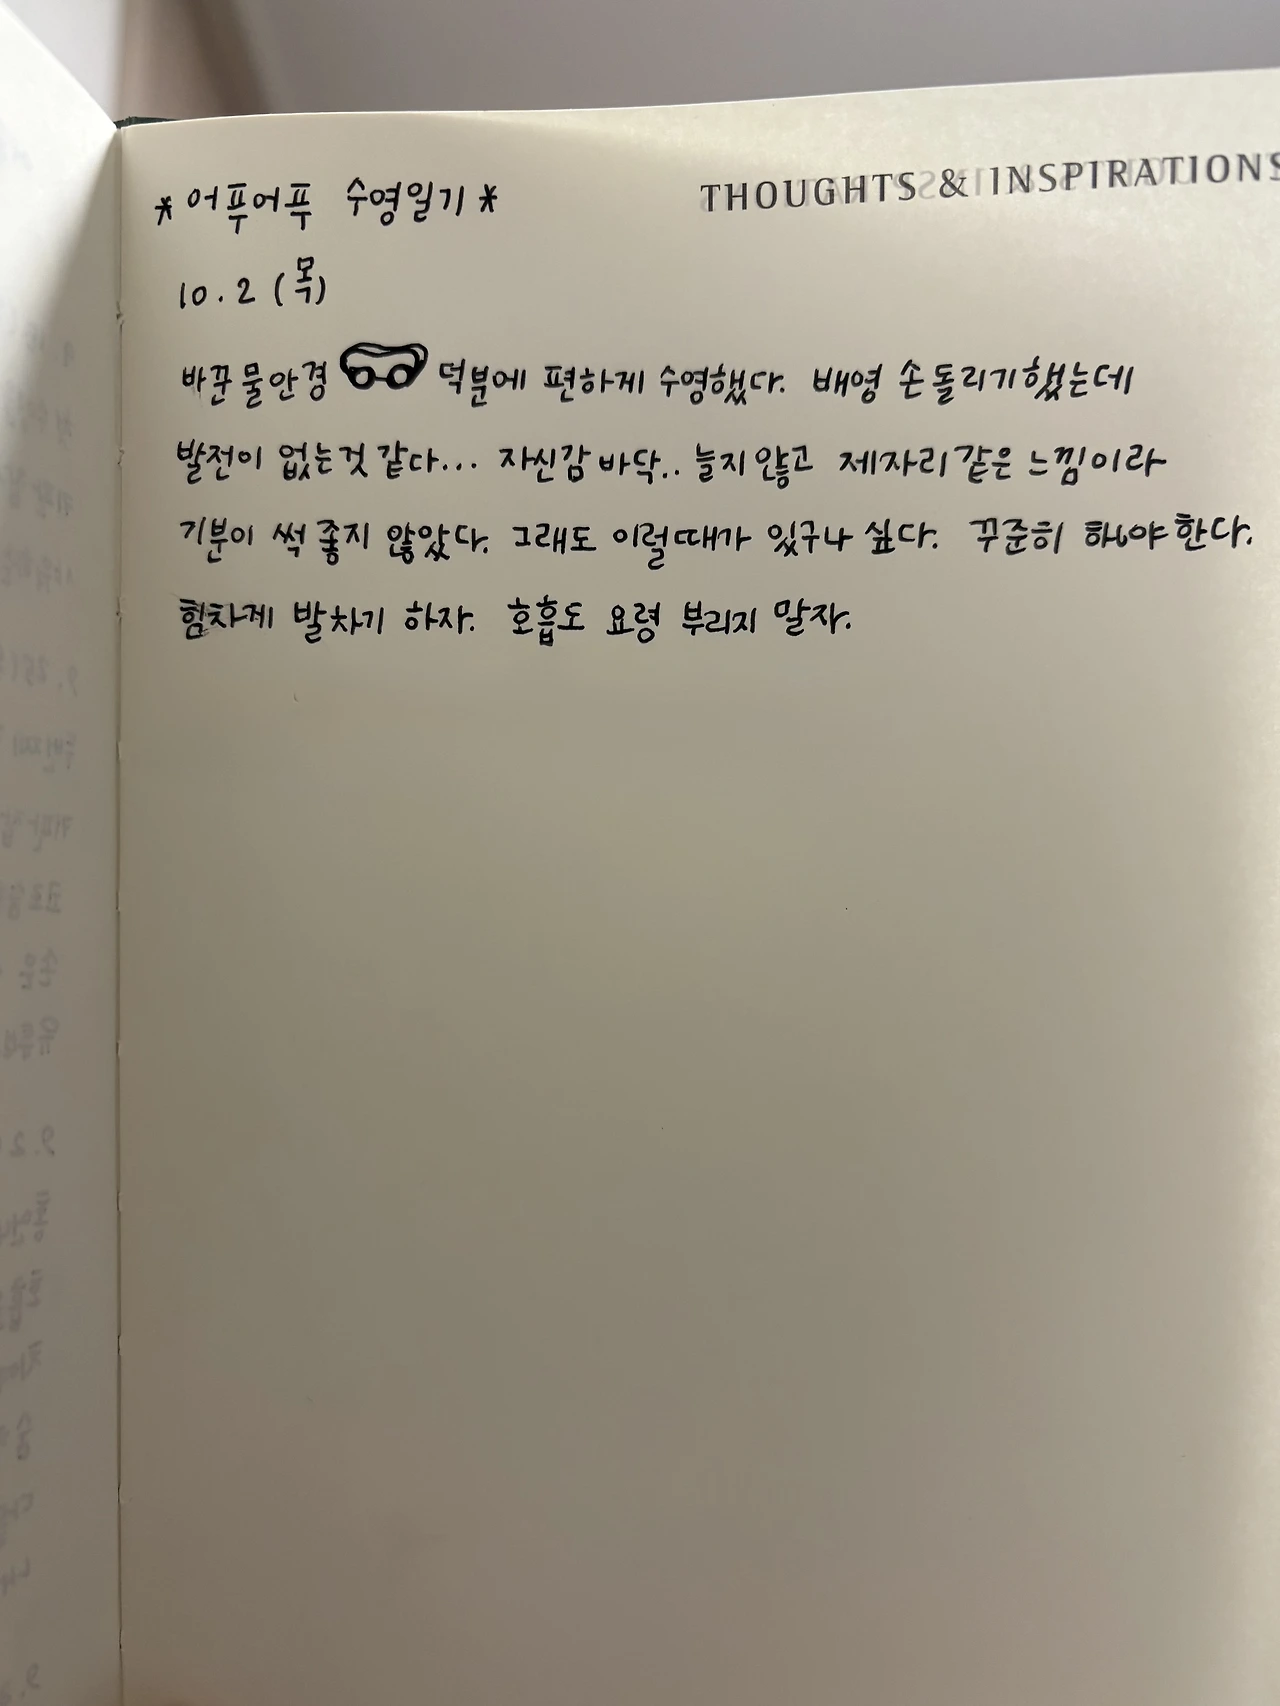 THOUGHTS & INSPIRATIONS
*어푸어푸 수영일기*
10.2 (목)
바꾼 물안경 덕분에 편하게 수영했다. 배영 손돌리기했는데
발전이 없는것 같다... 자신감 바닥.. 늘지 않고 제자리같은 느낌이라
기분이 썩 좋지 않았다. 그래도 이럴때가 있구나 싶다. 꾸준히 해야한다.
힘차게 발차기 하자. 호흡도 요령 부리지 말자.